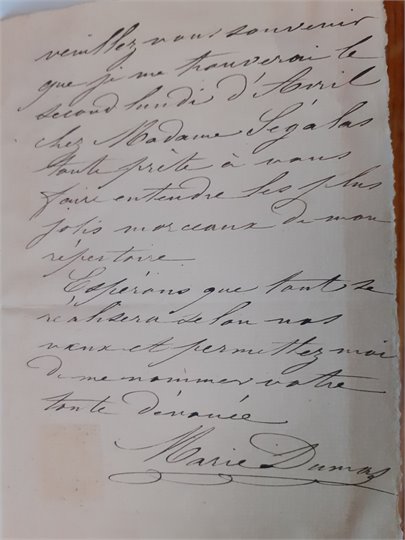 veuillez vous souvenir
que je me trouverai le
second lundi d'Avril
chez Madame Ségalas
toute prête à vous
faire entendre les plus
jolis morceaux de mon
répertoire.
Espérons que tout se
réalisera selon nos
vœux et permettez moi
de me nommer votre
toute dévouée
Marie Dumas